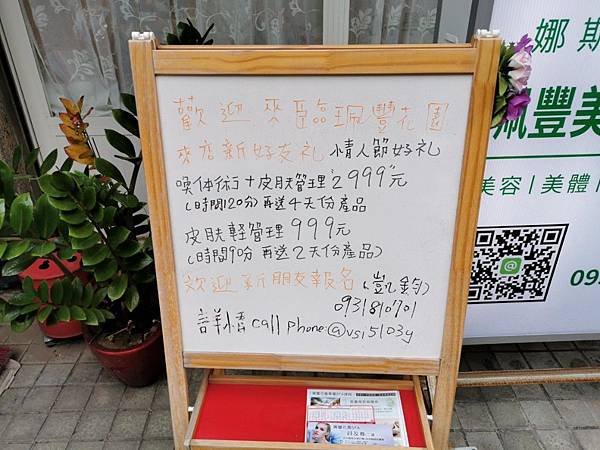 歡迎來臨珮豐花園
來店新好友礼 情人節好礼
喚体術+皮膚管理 2999元
(時間120分)再送4天份產品
皮膚輕管理 999元
(時間90分 再送2天份產品)
欢迎新朋友報名(凱鈞)
0931810701
詳情call phone:@vsi5103y
娜斯
珮豐美
美容|美體|
09